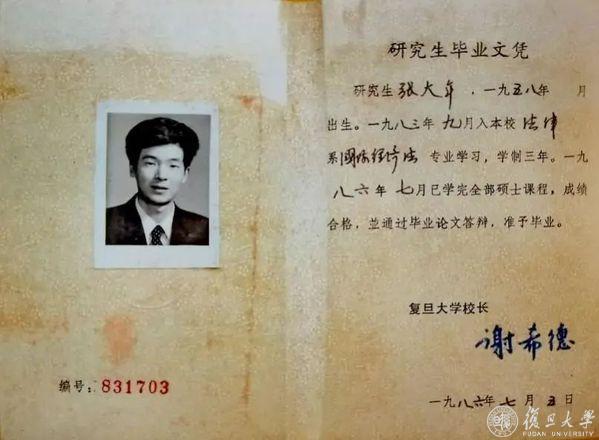 编号：831703
研究生毕业文凭
研究生张大年，一九五八年 月
出生。一九八三年九月入本校法律
系国际经济法专业学习，学制三年。一九
八六年七月已学完全部硕士课程，成绩
合格，並通过毕业论文答辩，准予毕业。
复旦大学校长
谢希德
一九八六年七月五日
復旦大學
FUDAN UNIVERSITY